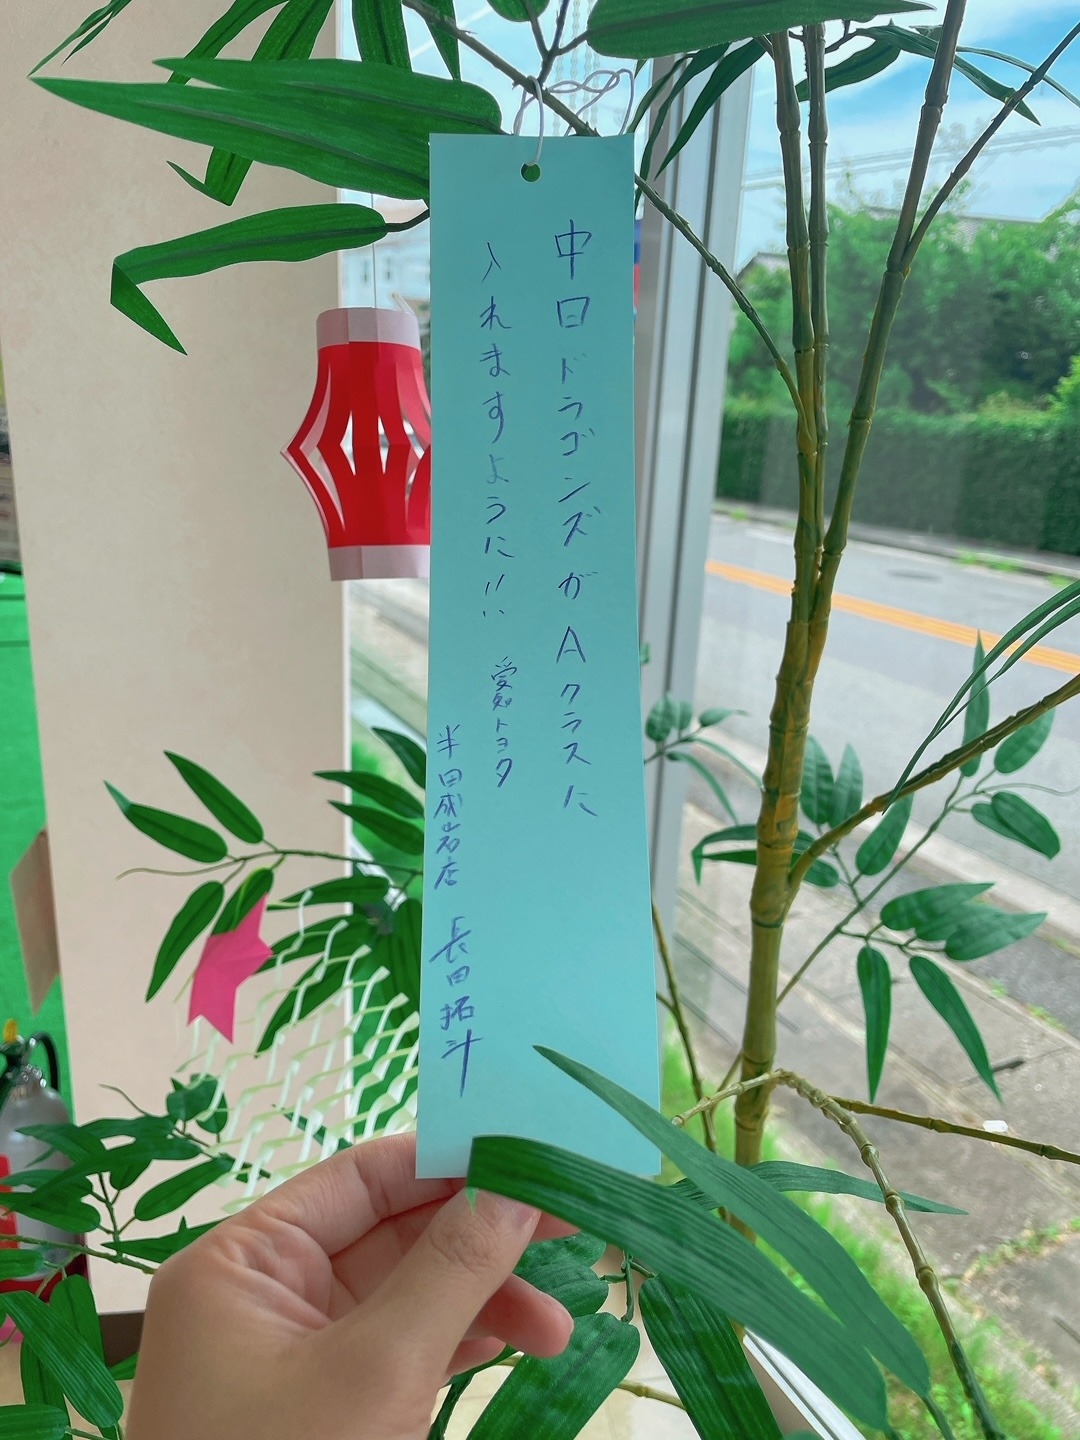 中日ドラゴンズがAクラスに
入れますように!!
愛知トヨタ
半田成岩店 長田拓斗